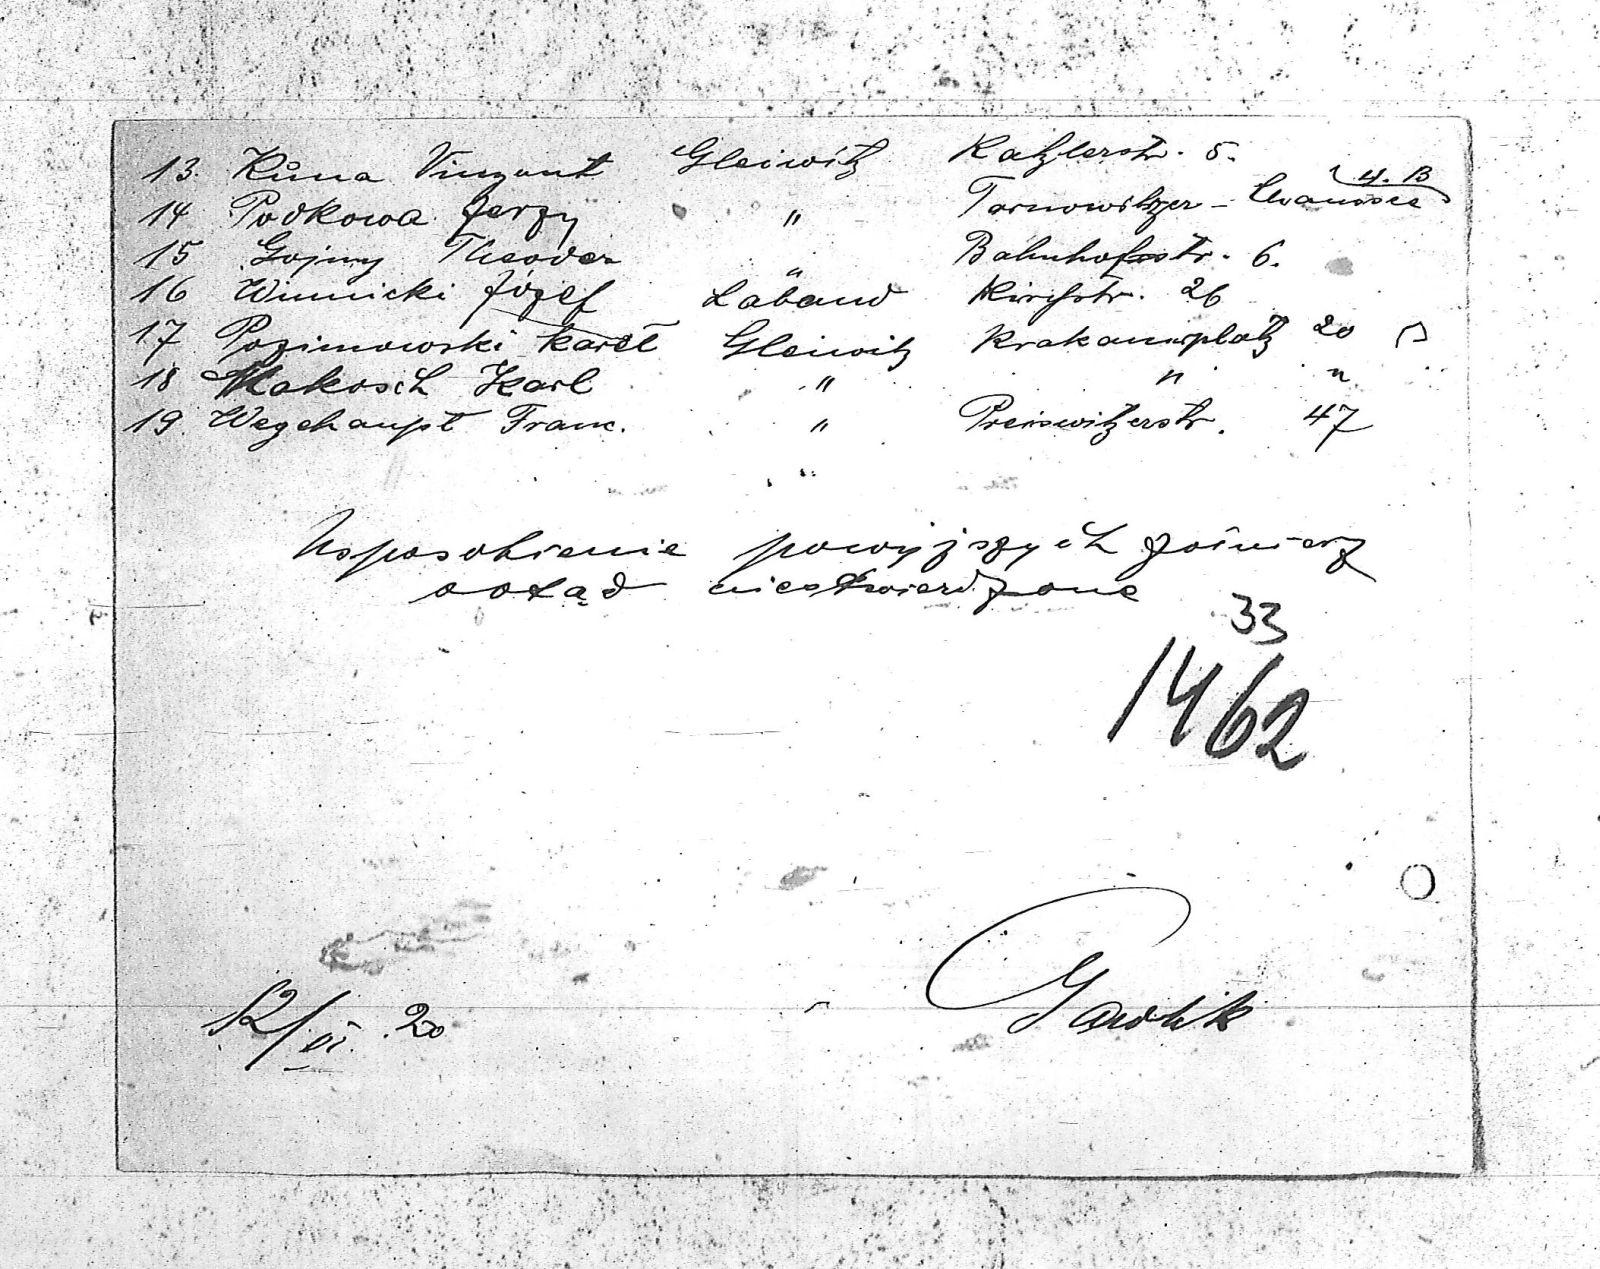 13. Kůna Vinzent Gleiwitz Katzlerstr. 5.
14 Podkowa Jerzy " Tarnowitzer - Chaussee 4. B
15 Gojny Theodor " Bahnhofstr. 6.
16 Winnicki Józef Laband Kirchstr. 26
17 Pozimowski Karol Gleiwitz Krakauerplatz 20
18 Makosch Karl " " "
19 Wegehaupt Franc. " Preiswitzerstr. 47
Usposobienie powyższych żołnierz
dotąd niestwierdzone
33
1462
12/VI. 20
Gawlik